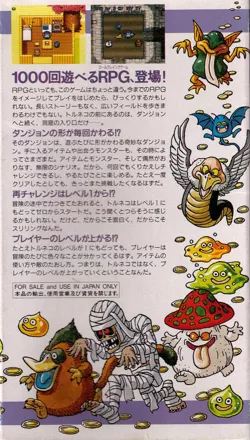 1000回遊べるRPG、登場!
RPGといっても、このゲームはちょっと違う。今までのRPG
をイメージしてプレイをはじめたら、びっくりするかもし
れない。長いストーリーもなく、広いフィールドを歩きま
わるわけでもない。トルネコの前にあるのは、ダンジョン
へと続く、洞窟の入り口だけ……。
ダンジョンの形が毎回かわる!?
そのダンジョンは、遊ぶたびに形がかわる奇妙なダンジョ
ン。手に入るアイテムや出会うモンスターも、その時によ
ってさまざまだ。アイテムとモンスター、そして偶然がお
りなす、無限のシナリオ。だから、何回でもくりかえしチ
ャレンジできるし、やるたびごとに楽しめる。たとえ一度
クリアしたとしても、きっとまた挑戦したくなるはずだ。
再チャレンジはレベル1から!?
冒険の途中で力つきてたおれると、トルネコはレベル1に
もどってゼロからスタートだ。こう聞くとつらそうに感じ
るかもしれない。だけど、だからこそ面白く、だからこそ
スリリングなんだ。
プレイヤーのレベルが上がる!?
たとえトルネコのレベルが1にもどっても、プレイヤーは
冒険のたびに色々なことが分かってくるはず。アイテムの
使い方や敵のたおし方。つまりは、トルネコではなく、プ
レイヤーのレベルが上がっていくということなんだ。
FOR SALE and USE IN JAPAN ONLY
本品の輸出、使用営業及び賃貸を禁じます。